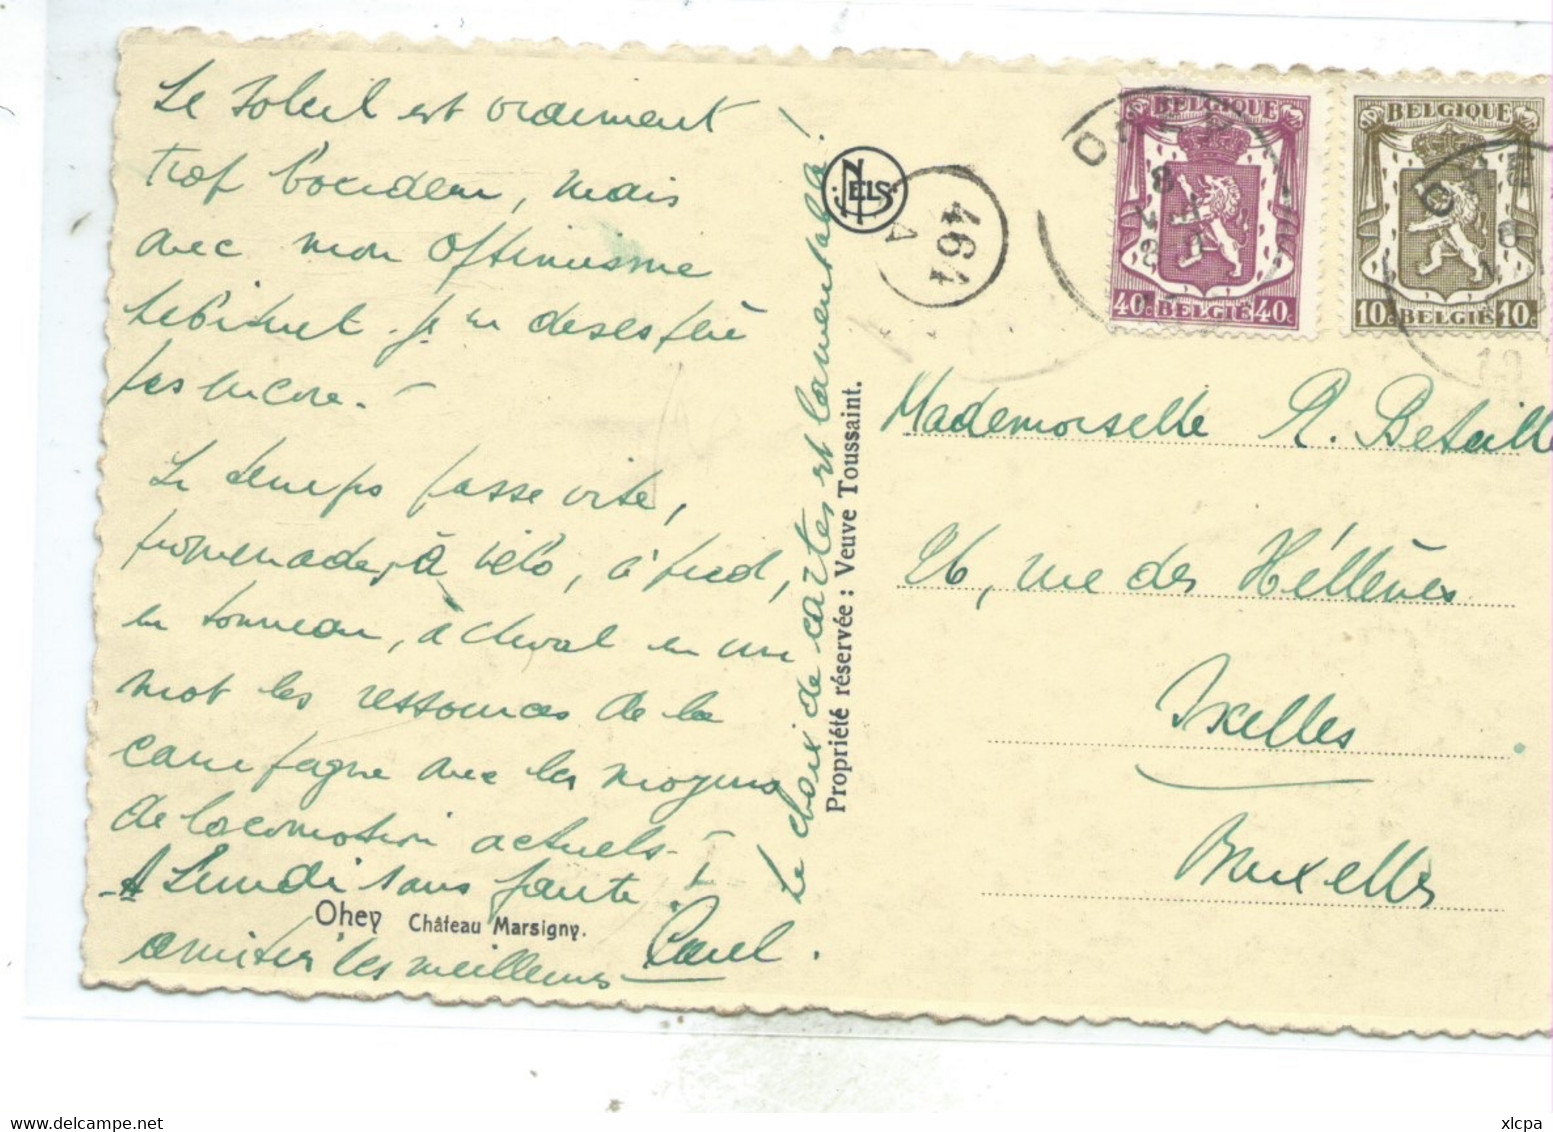 Le soleil est vraiment
trop boudeur, mais
avec mon optimisme
habituel je ne désespère
pas encore. -
Le temps passe vite,
promenades, à vélo, à pied,
en tonneau, à cheval en un
mot les ressources de la
campagne avec les moyens
de locomotion actuels -
A Lundi sans faute !
Ohey Château Marsigny.
amitiés les meilleures
Paul.
Le choix de cartes est lamentable !
NELS
Propriété réservée : Veuve Toussaint.
464
A
OHEY
BELGIQUE
40c BELGIË 40c
BELGIQUE
10c BELGIË 10c
Mademoiselle R. Bataille
26, rue des Hellènes
Ixelles
Bruxelles
xlcpa
delcampe.net